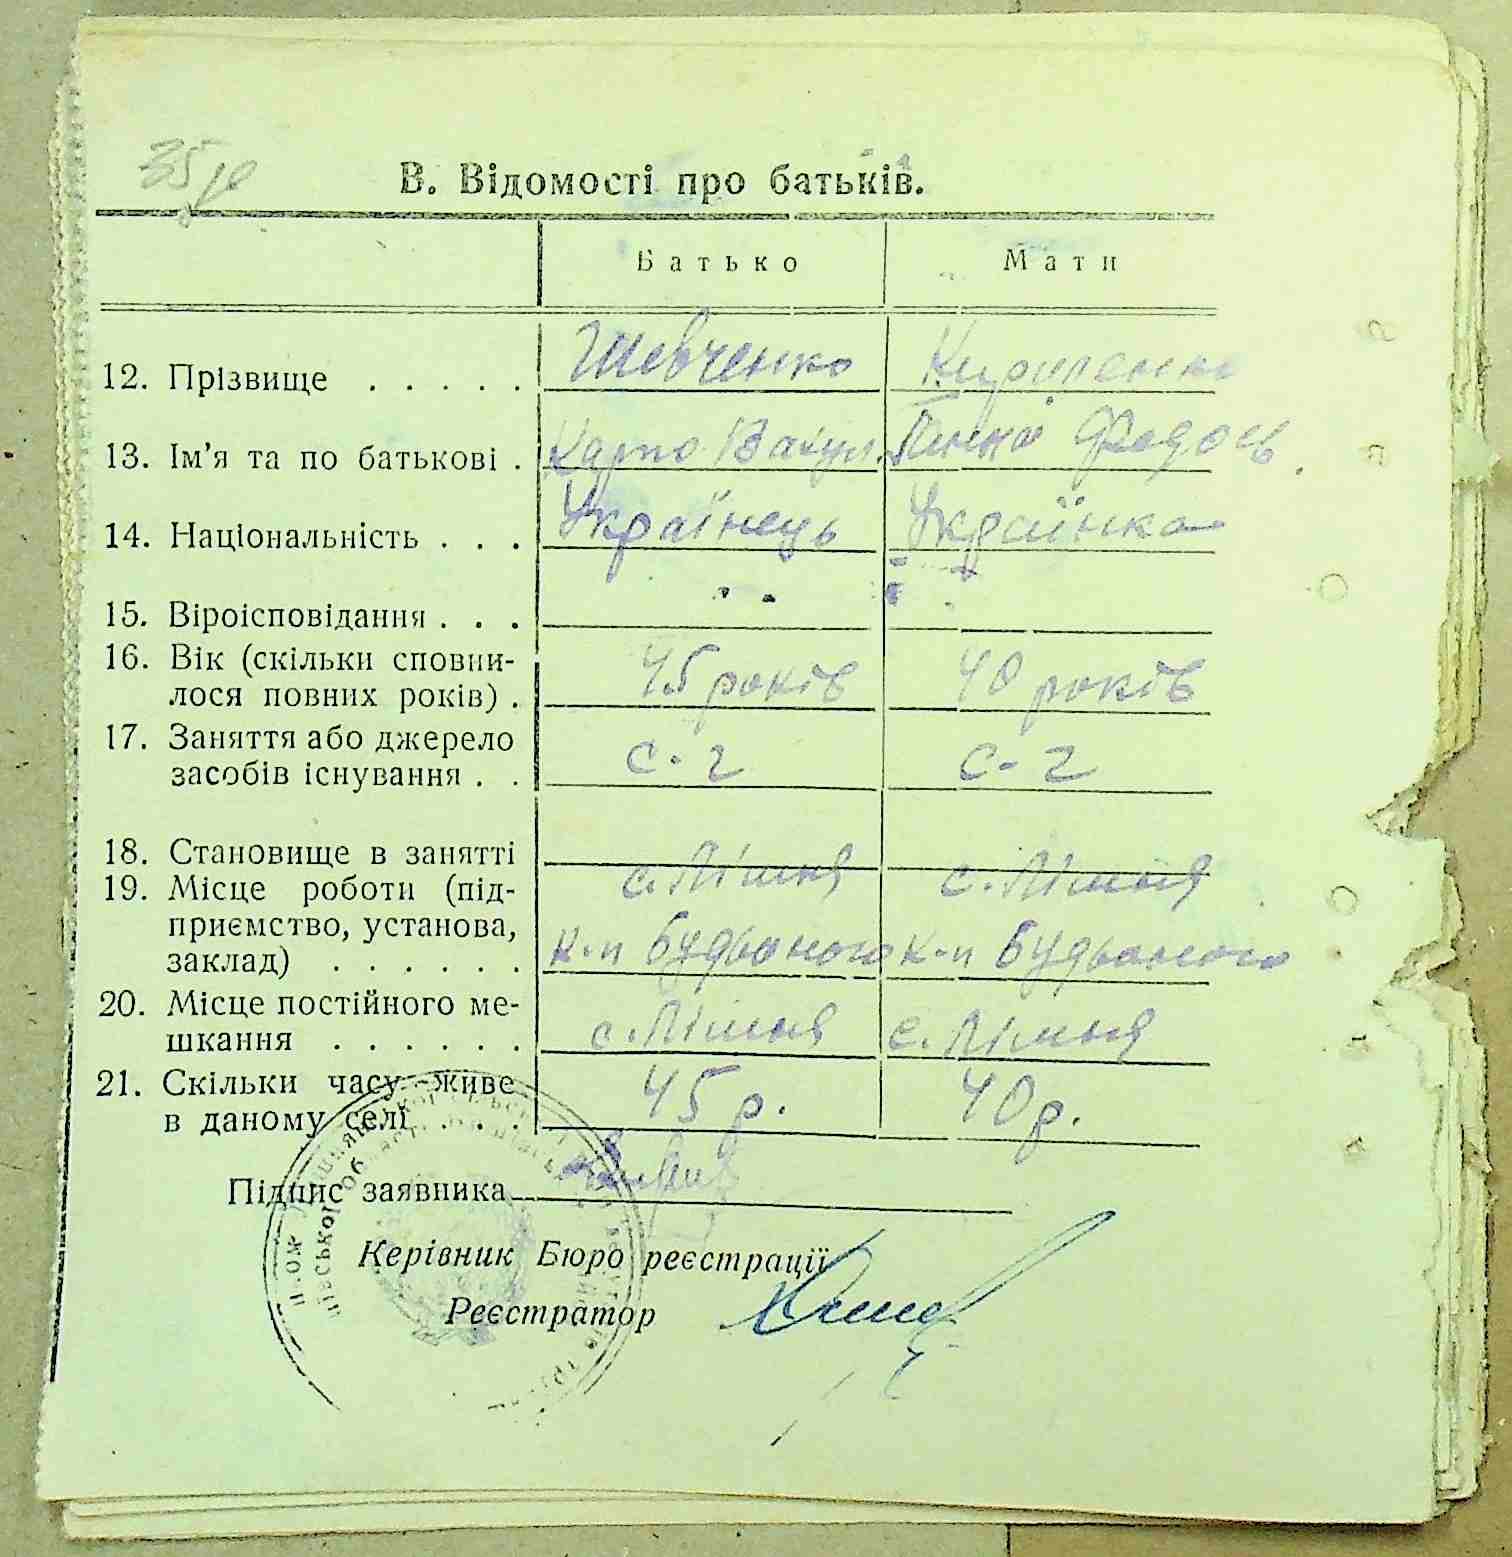 В. Відомості про батьків.
Батько Мати
12. Прізвище . . . . . Шевченко Кириленко
13. Ім'я та по батькові . Карпо Вакул. Федось.
14. Національність . . . Українець Українка
15. Віроісповідання . . .
16. Вік (скільки сповни-
лося повних років) . 45 років 40 років
17. Заняття або джерело
засобів існування . . с-г с-г
18. Становище в занятті
19. Місце роботи (під- с. Лішня с. Лішня
приємство, установа,
заклад) . . . . . . к-п Будьоного к-п Будьоного
20. Місце постійного ме-
шкання . . . . . . с. Лішня с. Лішня
21. Скільки часу живе
в даному селі . . . 45 р. 40 р.
Підпис заявника
Керівник Бюро реєстрації
Реєстратор